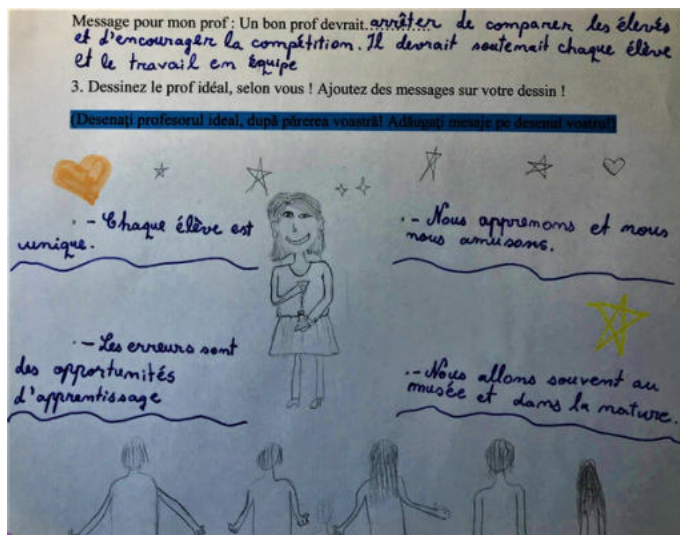 Message pour mon prof : Un bon prof devrait arrêter de comparer les élevés
et d'encourager la compétition. Il devrait soutemait chaque élève
et le travail em équipe
3. Dessinez le prof idéal, selon vous ! Ajoutez des messages sur votre dessin !
(Desenați profesorul ideal, după părerea voastră! Adăugați mesaje pe desenul vostru!)
- Chaque élève est
uunique.
- Nous appremons et nous
nous amusons.
- Les erreurs sont
des opportunités
d'apprentissage
- Nous allons souvent au
musée et dams la mature.